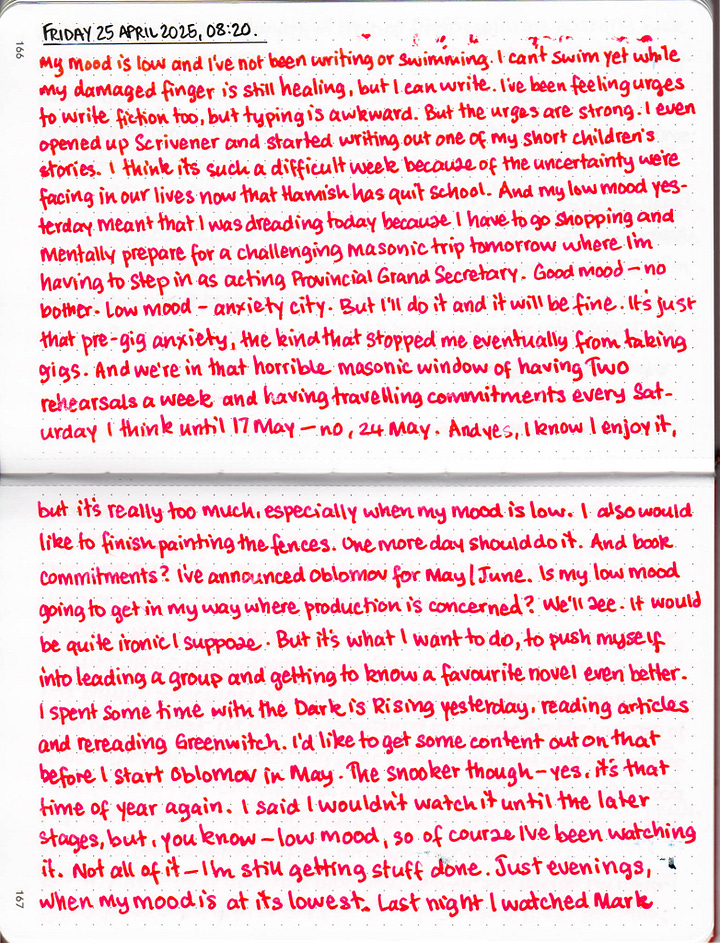 FRIDAY 25 APRIL 2025, 08:20.
166
My mood is low and I've not been writing or swimming. I can't swim yet while
my damaged finger is still healing, but I can write. I've been feeling urges
to write fiction too, but typing is awkward. But the urges are strong. I even
opened up Scrivener and started writing out one of my short children's
stories. I think it's such a difficult week because of the uncertainty we're
facing in our lives now that Hamish has quit school. And my low mood yes-
terday meant that I was dreading today because I have to go shopping and
mentally prepare for a challenging masonic trip tomorrow where I'm
having to step in as acting Provincial Grand Secretary. Good mood – no
bother. Low mood – anxiety city. But I'll do it and it will be fine. It's just
that pre-gig anxiety, the kind that stopped me eventually from taking
gigs. And we're in that horrible masonic window of having Two
rehearsals a week and having travelling commitments every Sat-
urday I think until 17 May – no, 24 May. And yes, I know I enjoy it,
but it's really too much, especially when my mood is low. I also would
like to finish painting the fences. One more day should do it. And book
commitments? I've announced Oblomov for May/June. Is my low mood
going to get in my way where production is concerned? We'll see. It would
be quite ironic I suppose. But it's what I want to do, to push myself
into leading a group and getting to know a favourite novel even better.
I spent some time with the Dark is Rising yesterday, reading articles
and rereading Greenwitch. I'd like to get some content out on that
before I start Oblomov in May. The snooker though – yes, it's that
time of year again. I said I wouldn't watch it until the later
stages, but, you know – low mood, so of course I've been watching
it. Not all of it – I'm still getting stuff done. Just evenings,
when my mood is at its lowest. Last night I watched Mark
167